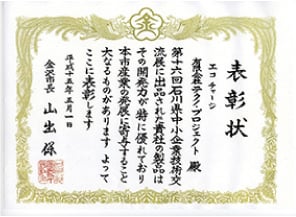 金
表彰状
エコチャージ
有限会社テクノプロジェクト 殿
第十六回石川県中小企業技術交
流展に出品された貴社の製品は
その開発力が特に優れており
本市産業の発展に寄与すること
大なるものがあります よって
ここに表彰します
平成十五年五月一日
金沢市長 山出 保